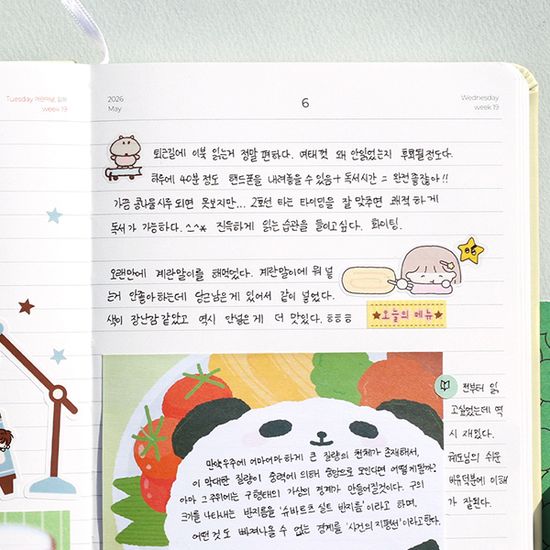 Tuesday
week 19
2026
May
6
Wednesday
week 19
퇴근길에 이북 읽는거 정말 편하다. 여태껏 왜 안읽었는지 후회될정도다.
하루에 40분 정도 핸드폰을 내려놓을 수 있음 + 독서시간 = 완전좋잖아!!
가끔 콩나물시루 되면 못보지만... 2호선 타는 타이밍을 잘 맞추면 쾌적하게
독서가 가능하다. ^_^* 진득하게 읽는 습관을 들이고싶다. 화이팅.
오랜만에 계란말이를 해먹었다. 계란말이에 뭐 넣
는거 안좋아하는데 당근남은게 있어서 같이 넣었다.
색이 장난감 같았고 역시 안넣은게 더 맛있다. ㅎㅎㅎ
오늘의 메뉴
만약우주에 어마어마하게 큰 질량의 천체가 존재해서,
이 막대한 질량이 중력에 의해 중앙으로 모인다면 어떻게될까?
아마 그주위에는 구형태의 가상의 경계가 만들어질것이다. 구의
크기를 나타내는 반지름을 '슈바르츠 실트 반지름'이라고 하며,
어떤 것도 빠져나올 수 없는 경계를 '사건의 지평선'이라고한다.
전부터 읽
고싶었는데 역
시 재밌다.
궤도님의 쉬운
비유덕분에 이해
가 잘된다.